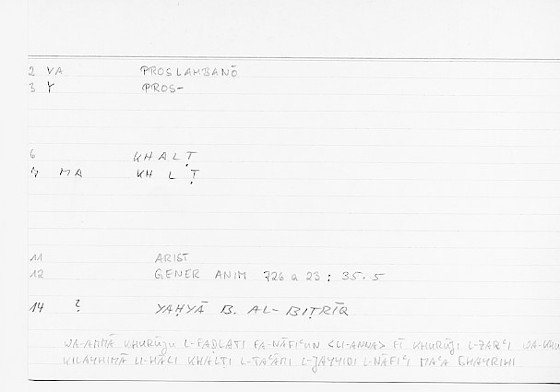 2 VA PROSLAMBANŌ
3 Y PROS-
6 KHALṬ
7 MA KH L Ṭ
11 ARIST
12 GENER ANIM 726 a 23 : 35.5
14 ? YAḤYĀ B. AL-BIṬRĪQ
WA-AMMĀ KHURŪJU L-FAḌLATI FA-NĀFIʿUN <LI-ANNA> FĪ KHURŪJI L-ZARʿI
KILAYHIMĀ LI-ḤĀLI KHALṬI L-ṬAʿĀMI L-JAYYIDI L-NĀFIʿI MAʿA GHAYRIHI